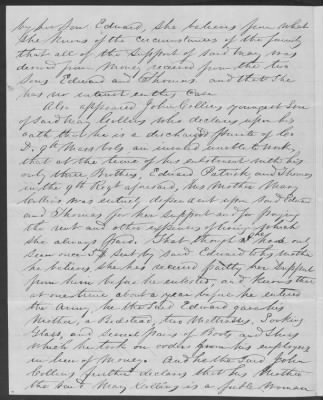 by her son Edward, she believes from what
she knows of the circumstances of the family
that all of the support of said Mary was
derived from money received from the two
sons Edward and Thomas, and that she
has no interest in this case
Also appeared John Collins youngest son
of said Mary Collins who declares upon his
oath that he is a discharged private of Co
I. 9th Mass Vols an invalid unable to work,
that at the time of his enlistment with his
only three Brothers, Edward Patrick and Thomas
in the 9th Regt aforesaid, his Mother Mary
Collins was entirely dependent upon said Edward
and Thomas for her support and for paying
the rent and other expenses of living which
she always paid. That though he has only
seen once sent by said Edward to his mother
he believes she has received partly her support
from him before he enlisted, and knows that
at one time about a year before he entered
the Army, he the said Edward gave his
Mother, a Bedstead, two Mattresses, Looking
Glass, and several pairs of Boots and Shoes
which he took on orders from his employers
in lieu of money. And he the said John
Collins further declares that his Mother
the said Mary Collins is a feeble woman